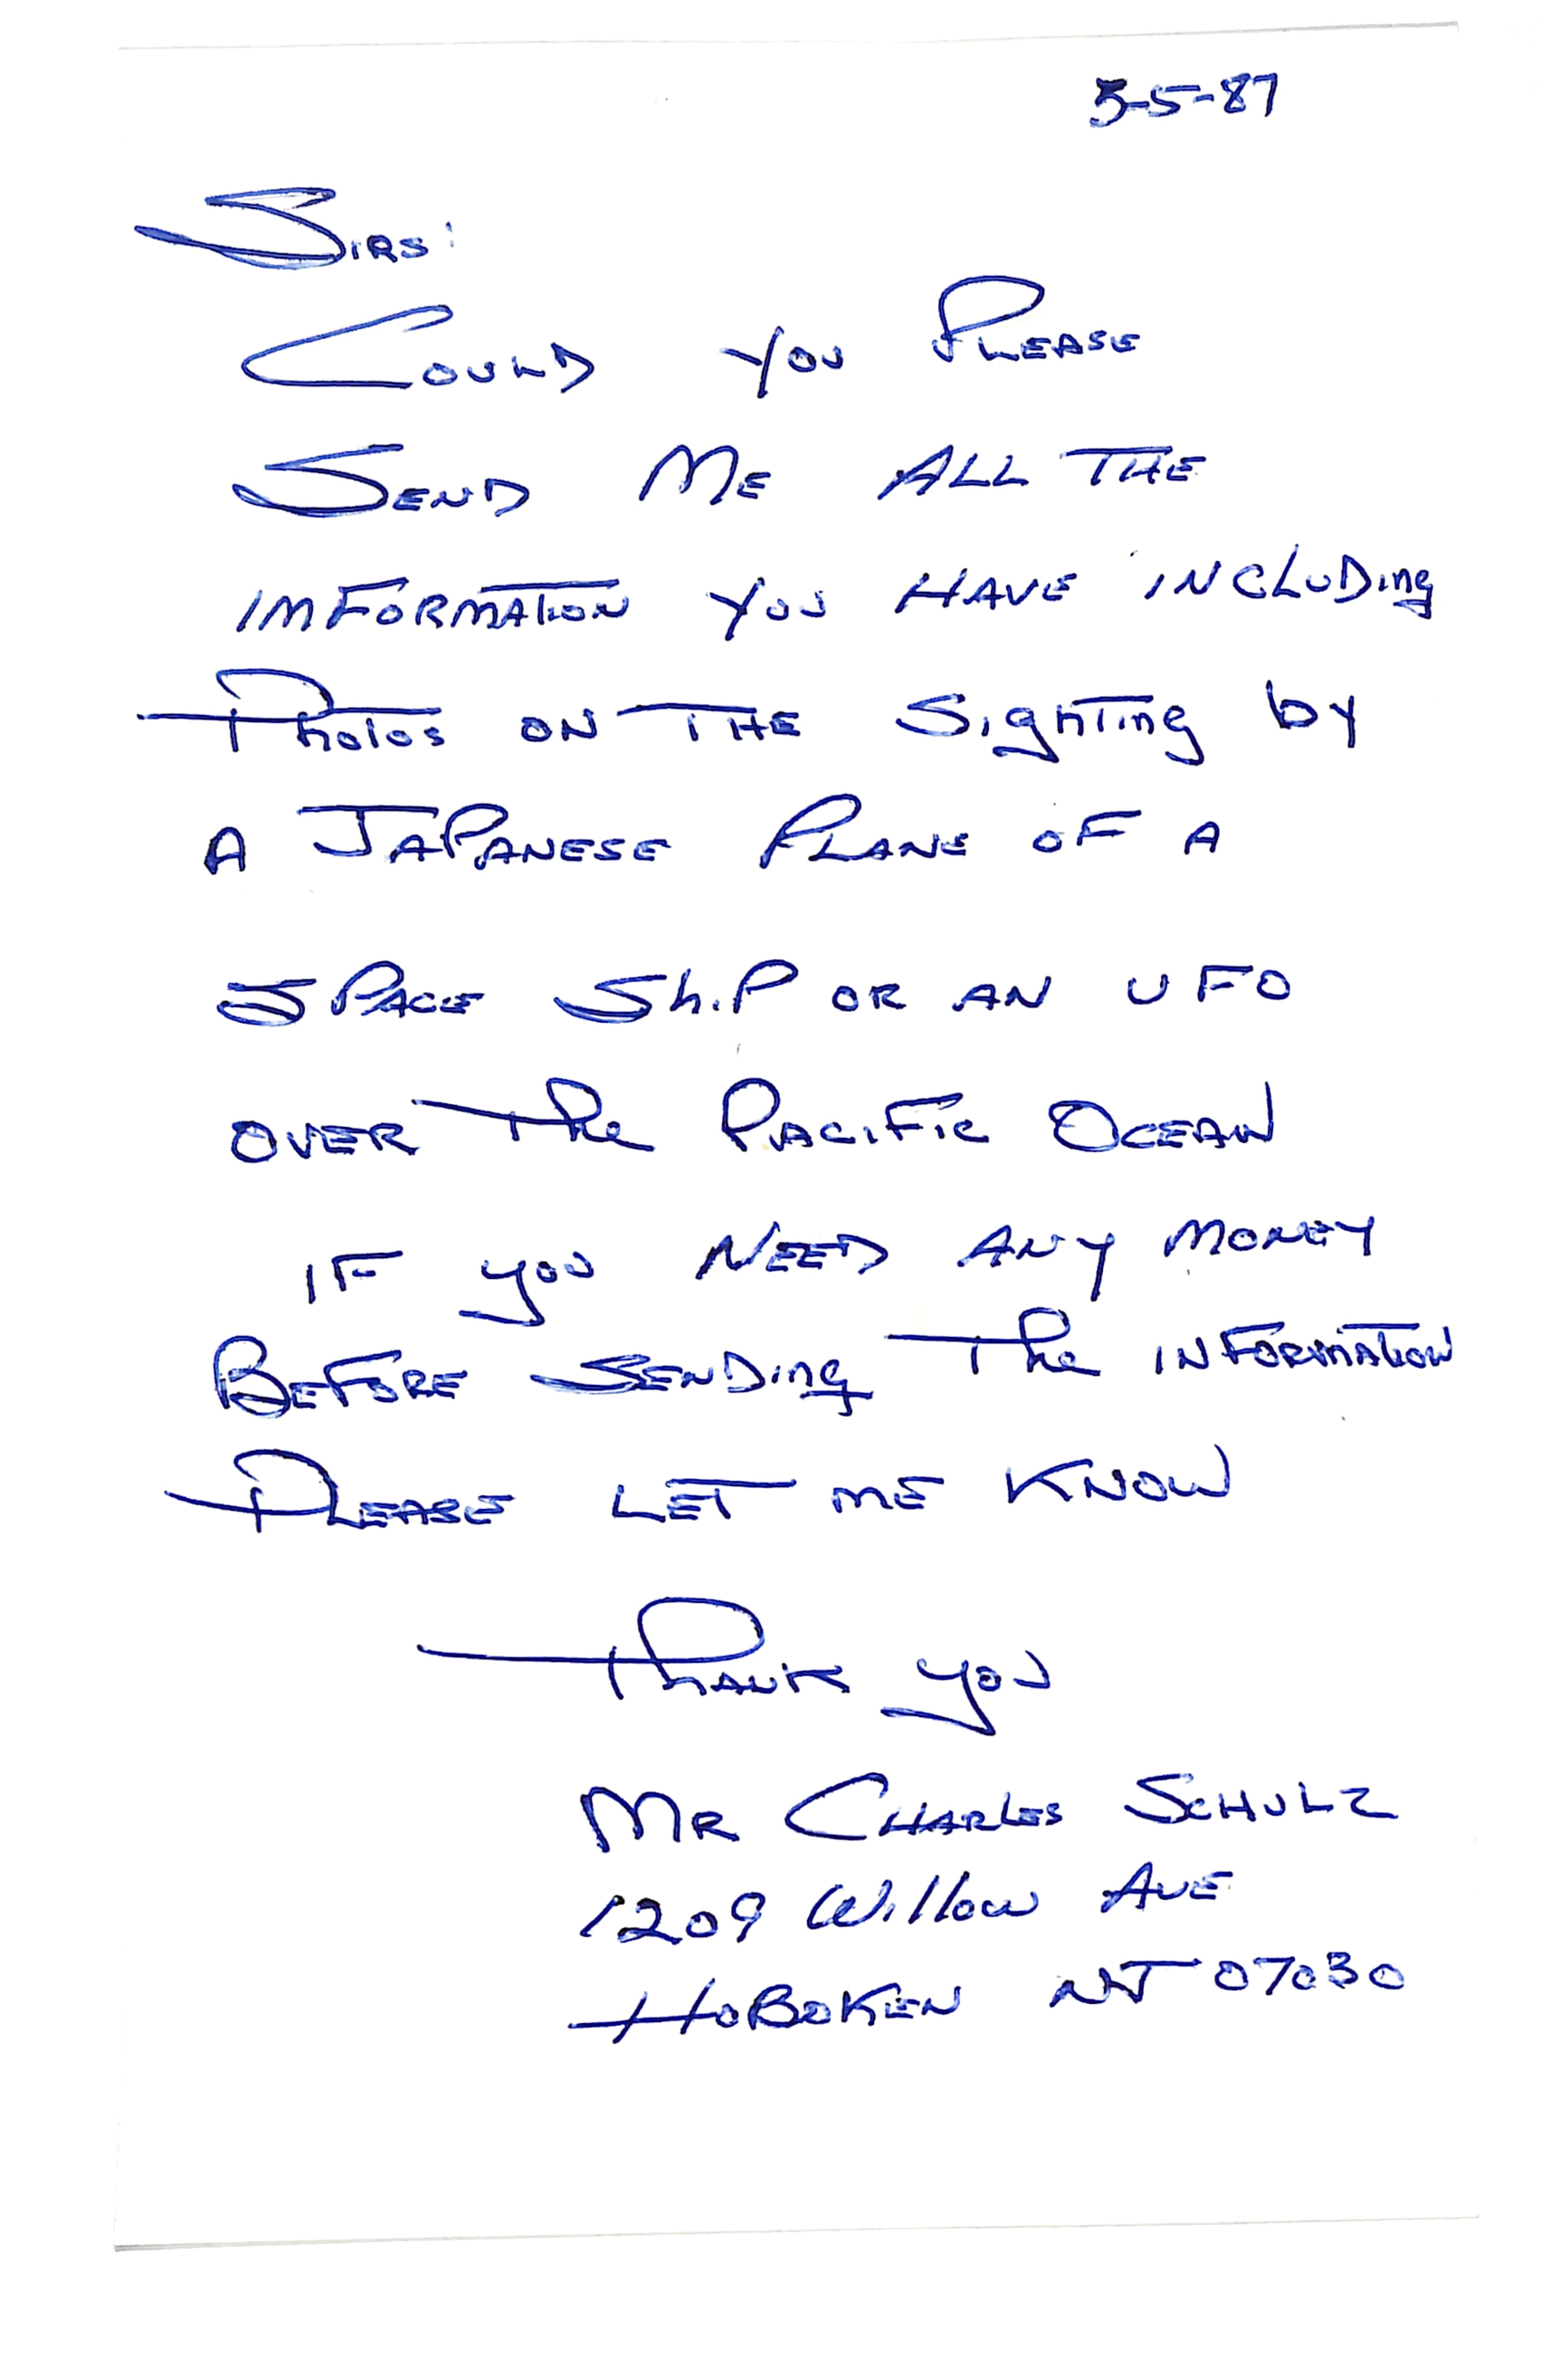 3-5-87
Sirs:
Could you Please
Send Me All The
imformation you have including
Photos on The Sighting by
A Japanese Plane of A
Space Ship or an UFO
over The Pacific Ocean
if you Need any money
Before Sending The information
Please Let me Know
Thank you
Mr Charles Schulz
1209 Willow Ave
Hoboken NJ 07030